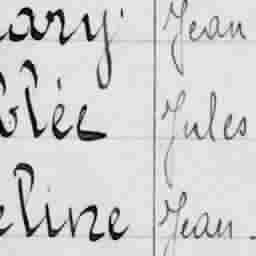 ary. Jean
blée Jules
eline Jean.